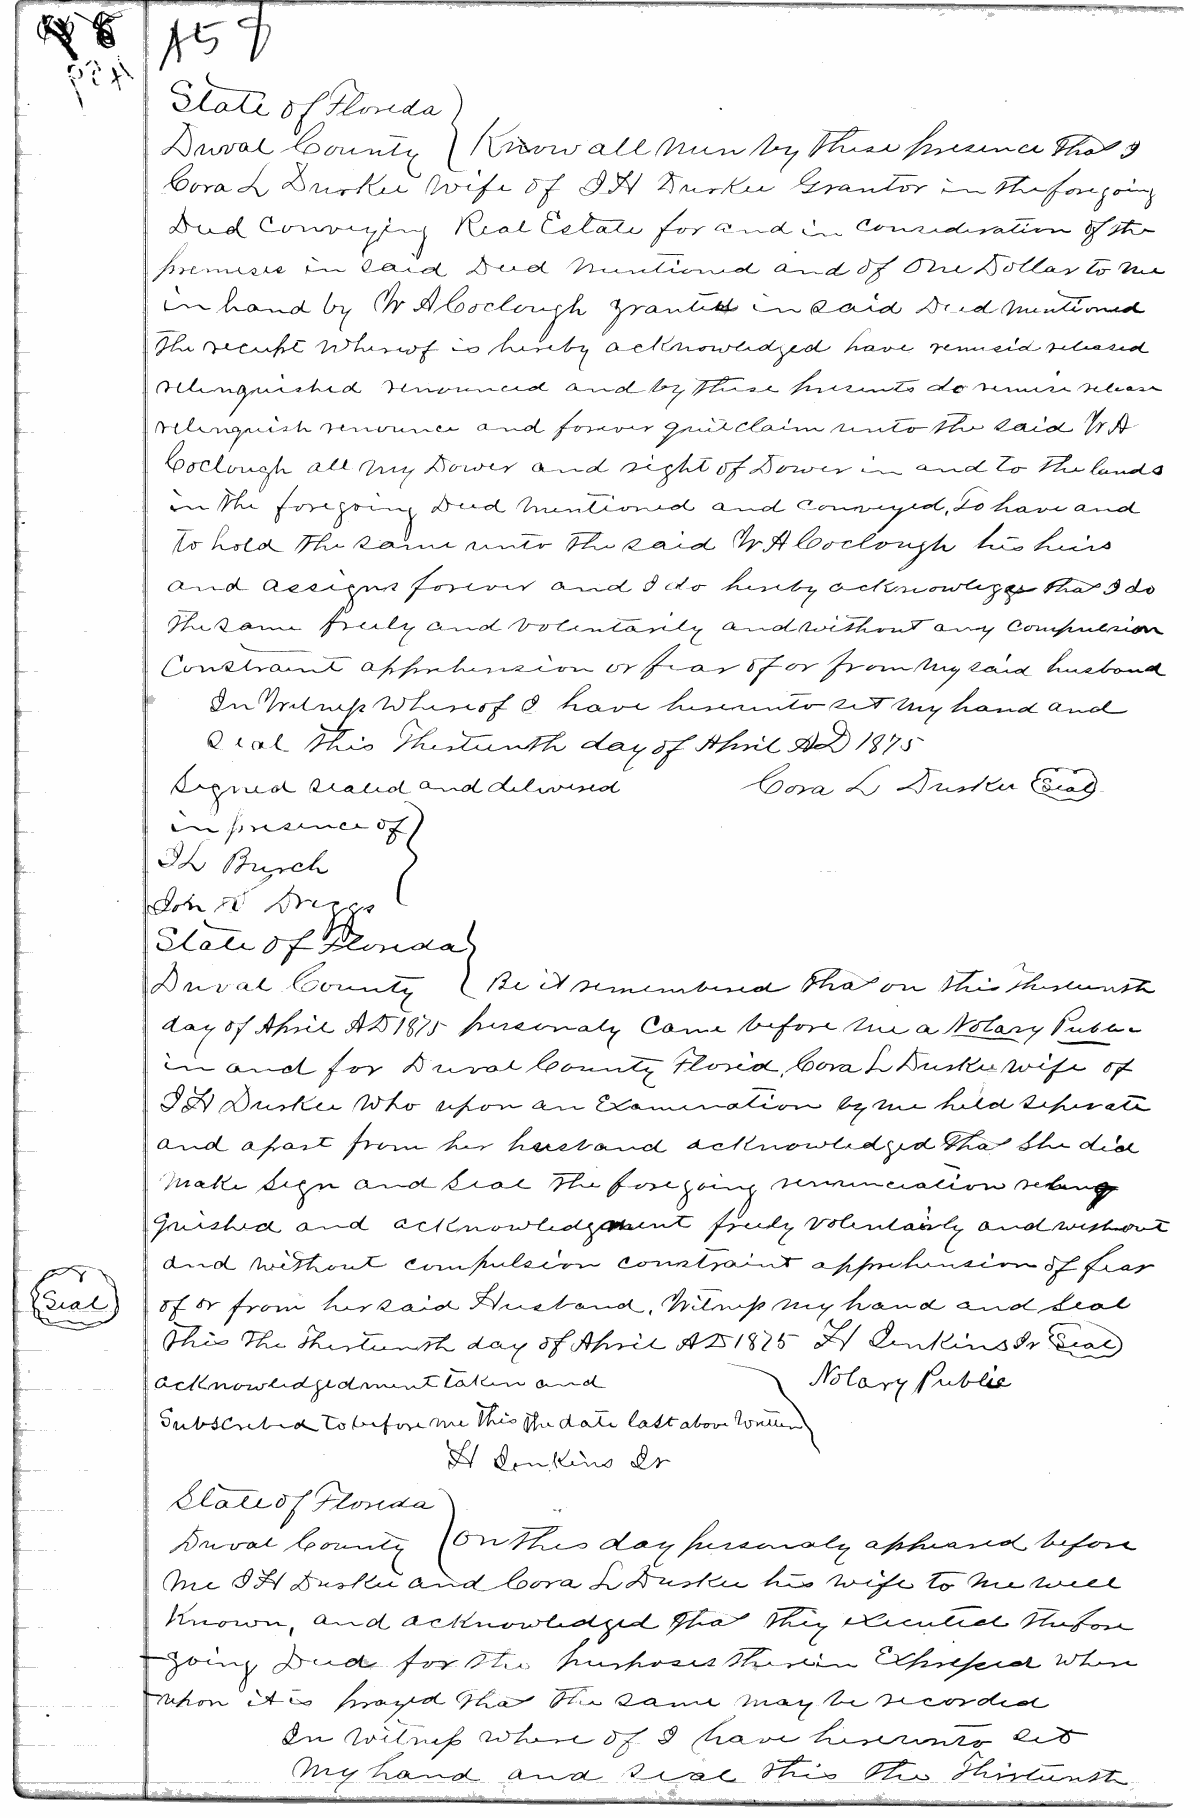 459
State of Florida
Duval County Know all Men by these presence that I
Cora L Durkee wife of J H Durkee Grantor in the foregoing
Deed Conveying Real Estate for and in consideration of the
premises in said Deed Mentioned and of One Dollar to me
in hand by W A Coclough grantee in said Deed Mentioned
the receipt whereof is hereby acknowledged have remised released
relinquished renounced and by these presents do remise release
relinquish renounce and forever quit claim unto the said W A
Coclough all my Dower and right of Dower in and to the lands
in the foregoing Deed Mentioned and conveyed, To have and
to hold the same unto the said W A Coclough his heirs
and assigns forever and I do hereby acknowlege that I do
the same freely and volentarily and without any compulsion
Constraint apprehension or fear of or from my said husband
In Witness whereof I have hereunto set my hand and
seal this Thirteenth day of April AD 1875
Signed sealed and delivered Cora L Durkee Seal
in presence of
J L Burch
John R Driggs
State of Florida
Duval County Be it remembered that on this Thirteenth
day of April AD 1875 personaly Came before me a Notary Public
in and for Duval County Florid, Cora L Durkee wife of
J H Durkee who upon an Examination by me held seperate
and apart from her husband acknowledged that She did
Make Sign and Seal the foregoing renunciation relinq
quished and acknowledgement freely volentairly and without
and without compulsion constraint apprehension of fear
Seal of or from her said Husband, Witness my hand and Seal
This the Thirteenth day of April AD 1875 H Jenkins Jr Seal
acknowledgedment taken and Notary Public
Subscribed to before me this the date last above written
H Jenkins Jr
State of Florida
Duval County On this day personaly appeared before
me J H Durkee and Cora L Durkee his wife to me well
Known, and acknowledged that they executed the fore
going Deed for the purposes therein Expressed where
upon it is prayed that the same may be recorded
In witness where of I have hereunto set
My hand and seal this the Thirteenth